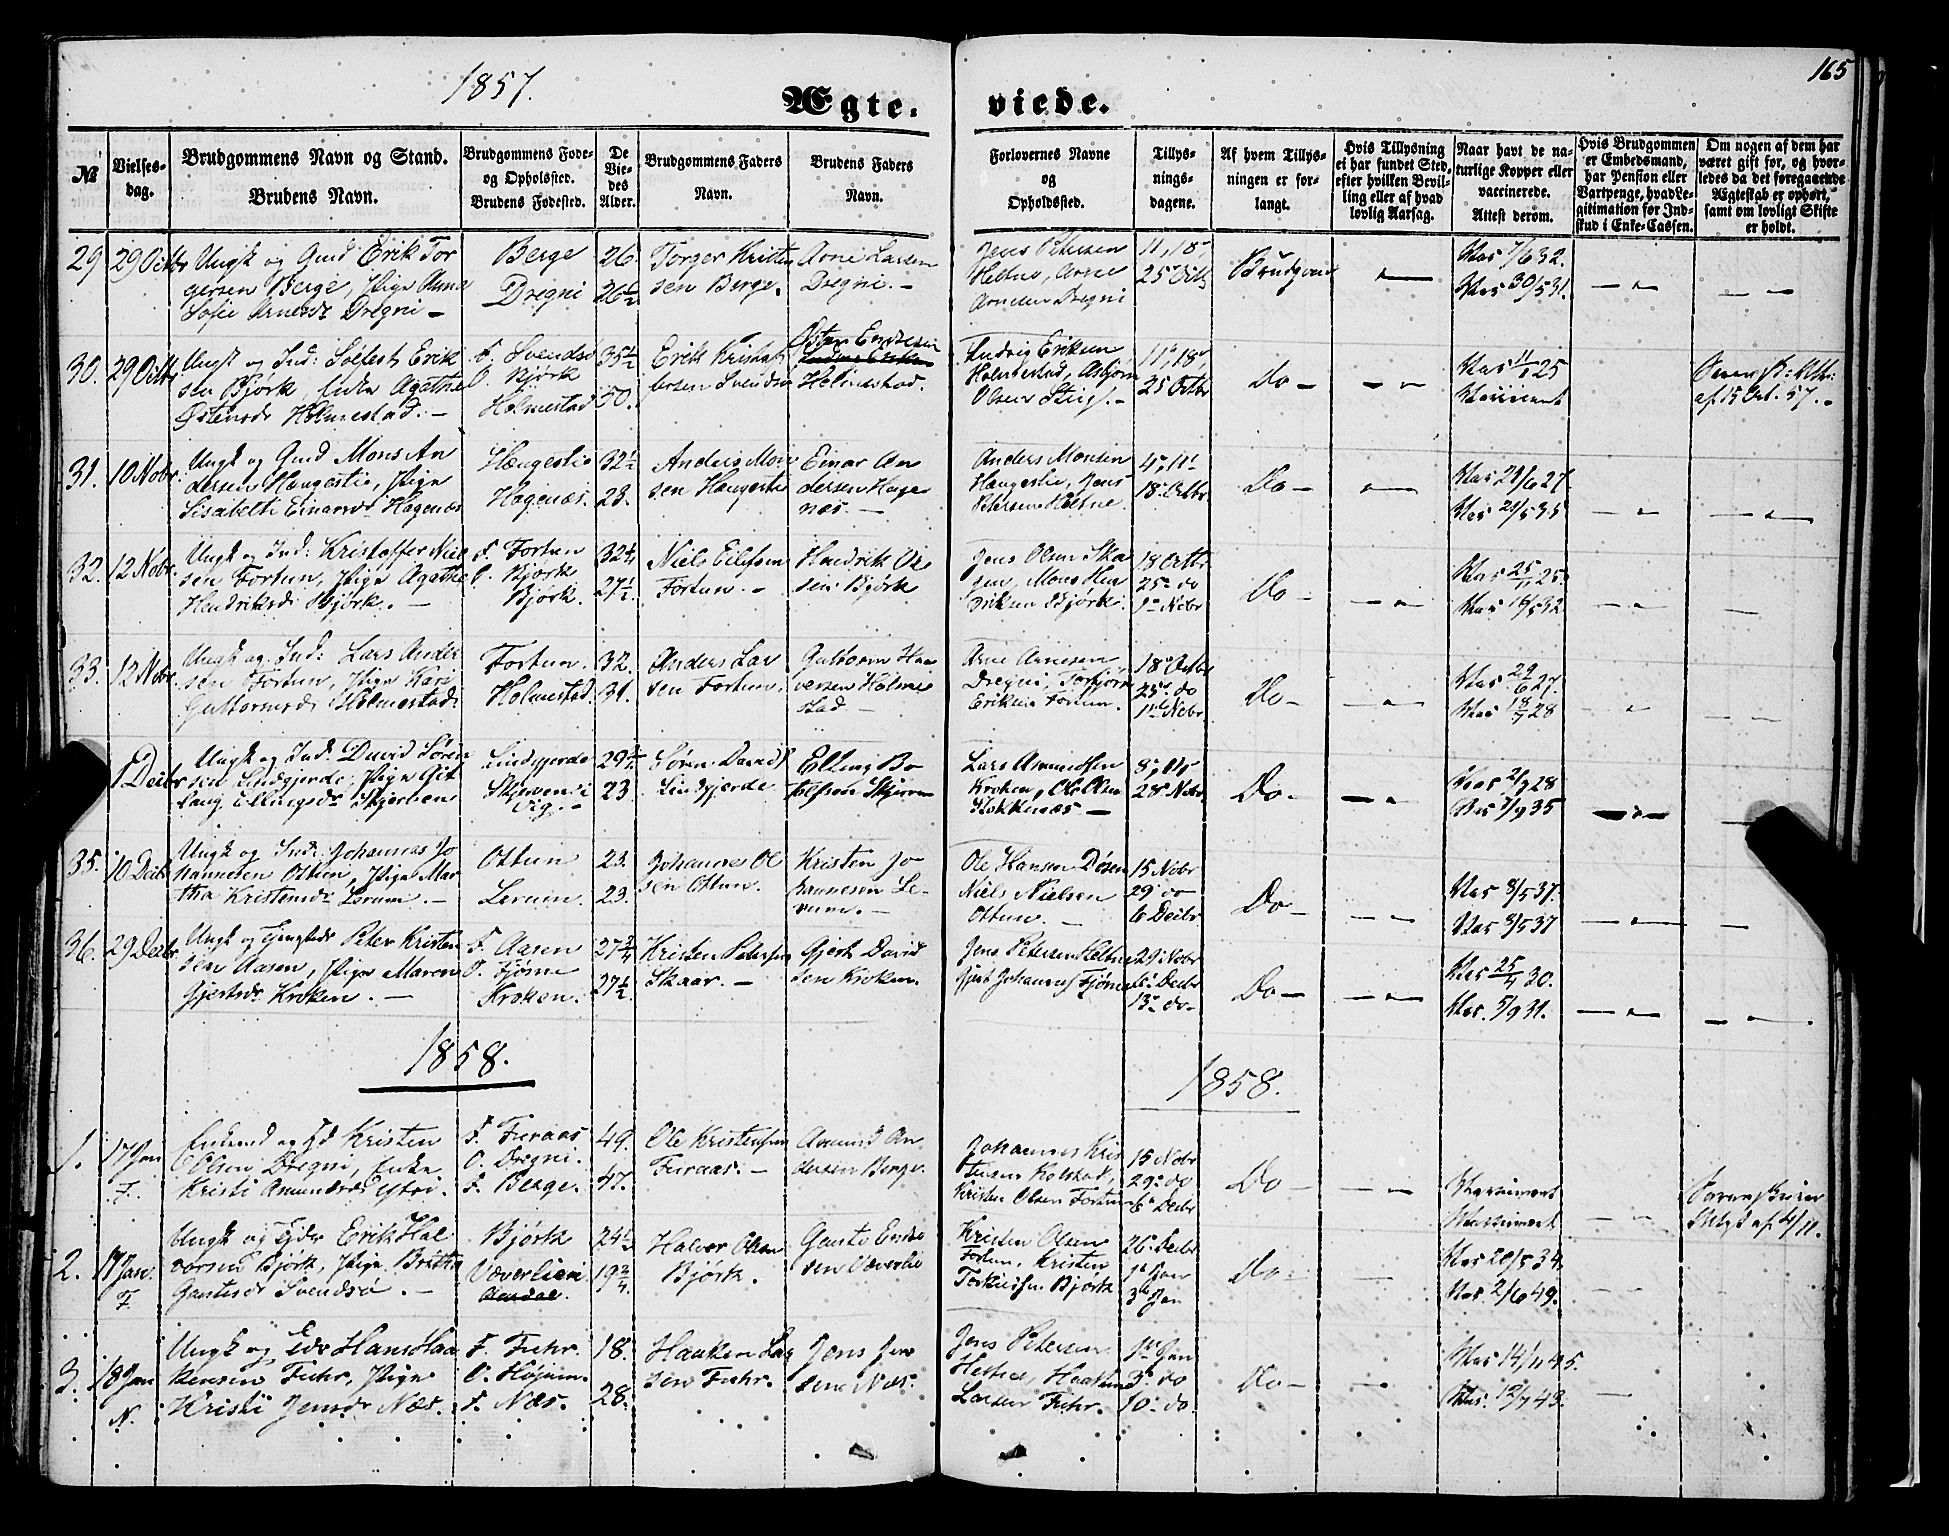 1857.
Ægte.
viede.
165
№
Vielses-
dag.
Brudgommens Navn og Stand.
Brudens Navn.
Brudgommens Føde-
og Opholdssted.
Brudens Fødested.
De
Vie-
des
Alder.
Brudgommens Faders
Navn.
Brudens Faders
Navn.
Forlovernes Navne
og
Opholdsted.
Tillys-
nings-
dagene.
Af hvem Tillys-
ningen er for-
langt.
Hvis Tillysning
ei har fundet Sted,
efter hvilken Bevil-
ling eller af hvad
lovlig Aarsag.
Naar havt de na-
turlige Kopper eller
vaccinerede.
Attest derom.
Hvis Brudgommen
er Embedsmand,
har Pension eller
Vartpenge, hvad Le-
gitimation for Ind-
skud i Enke-Cassen.
Om nogen af dem har
været gift før, og hvor-
ledes da det foregaaende
Ægteskab er ophørt,
samt om lovligt Skifte
er holdt.
29 29 Octbr Ungk og Gmd Erik Tor
gersen Berge, Pige Anna
Sofie Arnesdr Dregni -
Berge
Dregni
26
26½
Torger Kristen
sen Berge.
Arne Larsen
Dregni. -
Jens Petersen
Heltne, Arne
Arnesen Dregni
11, 18,
25 Octb
Vac 7/6 32.
Vac 30/5 31.
30. 29 Octb Ungk og Ind: Erik
sen Bjørk, Enke Agathe
Østensdr Holmestad. -
F. Svendsø
O. Bjørk
Holmestad
50.
Erik Kristof
fersen Svendsø
Østen
Holmestad.
Ludvig Eriksen
Holmestad, Asbjørn
Olsen
11, 18
25 Octbr
Do -
25
af 15 Oct. 57. -
31. 10 Nobr. Ungk og Gmd Mons An
dersen Hængestie, Pige
Lisabeth Einarsdr Hagenæs
Hængestie
Hagenæs.
32½
23.
Anders Mon
sen Hængestie
Einar An
dersen Hage
næs -
Anders Monsen
Hængestie, Jens
Petersen Heltne
4, 11
18 Octbr
Do -
32. 12 Nobr. Ungk og Ind: Kristoffer Niel
sen Fortun, Pige Agathe
Hendriksdr Bjørk. -
F. Fortun
O. Bjørk
Bjørk.
32¼
27½.
Niels Eilefsen
Fortun. -
Hendrik Ol
sen Bjørk
Jens Olsen Ska
sen, Mons Hen
driksen Bjørk.
18 Octbr
25 do
1 Nobr
Do -
Vac 25/7 25.
Vac 16/5 32
33. 12 Nobr. Ungk og Ind: Lars Ander
sen Fortun, Pige Kari
Guttormsdr Holmestad.
Fortun.
Holmestad.
32.
31.
Anders Lar
sen Fortun.
Guttorm
Holme
stad -
Arne Arnesen
Dregni, Torbjørn
Eriksen Fortun.
18 Octbr
25 do
1 Nobr
Do -
Vac 29/6 27.
Vac 18/7 28
1 Decbr Ungk og Ind: David Søren
sen Lindgjerde, Pige
Ellingsdr Skjerven
Lindgjerde
Skjerven i
Vig. -
23
Søren David
Lindgjerde
Elling Bo
Lars Amundsen
Kroken, Ole Olsen
Stokkenæs -
28 Nobr
Do -
Vac 2/9 28
Vac 7/9 35
35. 10 Decb Ungk og Ind: Johannes Jo
hannesen Ottum, Pige Mar
tha Kristensdr Lerum. -
Ottum
Lerum.
23.
23.
Johannes Ol
sen Ottum.
Kristen Jo
hannesen Le-
rum. -
Ole Hansen Døsen
Niels Nielsen
Ottum. -
15 Nobr
29 do
6 Decbr
Do -
Vac 8/5 37.
Vac 8/5 37
36. 29 Decbr. Ungk og Peter Kristen
sen Aasen, Pige Maren
Gjertsdr Kroken. -
F. Aasen
O. Fjøsne
Kroken.
27¾
27½
Kristen Petersen
Skaar. -
Gjert David
sen Kroken.
Jens Petersen Heltne
Gjert Johannes Fjøsne
29 Nobr
6 Decbr
13 do
Do -
Vac 25/7 30.
Vac. 5/9 31.
1858.
1858.
1. 17 Jan
F.
Enkemd og Kristen
Olsen Dregni, Enke
Kristi Amundsdr
F. Furaas
O. Dregni.
F. Berge.
49.
47.
Ole Kristensen
Furaas. -
Amund An
dersen Berge.
Johannes Kris
tensen Kolstad,
Kristen Olsen Fortun
15 Nobr
29 do
6 Decbr
Do -
af 4/11.
2. 17 Jan.
F
Ungk og Erik Hal
vorsen Bjørk, Pige Britha
Gautesdr Svendsø. -
Bjørk
Væverlien i
24½
19¾
Halvor Olsen
Bjørk.
Gaute
sen Væverlie
Kristen Olsen
Fortun, Kristen
Torkildsen Bjørk
26 Decbr
1 Jan
3 Jan
Do -
Vac 20/5 34.
Vac. 2/6 49.
3. 18 Jan
N.
Ungk og Hans Haa
kensen Fuhr, Pige
Kristi Jensdr Næs.
F. Fuhr.
O. Højum.
F. Næs.
18.
28.
Haaken Lar
sen Fuhr.
Jens Jen
sen Næs.
Jens Petersen
Heltne, Haaken
Larsen Fuhr.
1 Jan
3 do
10 do.
Do -
Vac 14/11 45.
Vac. 12/7 43.